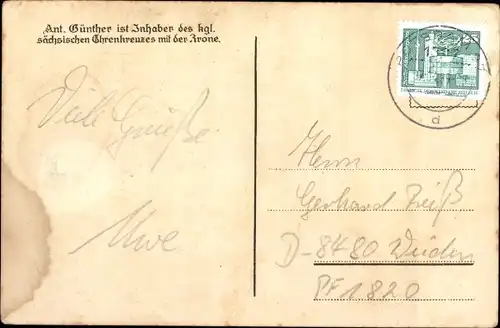 Ant. Günther ist Inhaber des kgl.
sächsischen Ehrenkreuzes mit der Krone.
Viele Grüße
Uwe
Herrn
Gerhard Reiß
D-8480 Weiden
PF 1820
25
d